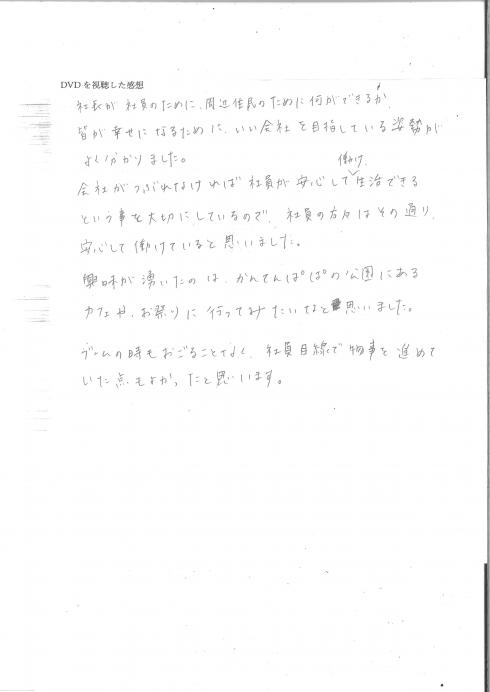 DVDを視聴した感想
社長が社員のために、周辺住民のために何ができるか、
皆が幸せになるために、いい会社を目指している姿勢が
よく分かりました。
会社がつぶれなければ社員が安心して働け、生活できる
という事を大切にしているので、社員の方々はその通り、
安心して働けていると思いました。
興味が湧いたのは、かんてんぱぱの公園にある
カフェや、お祭りに行ってみたいなと思いました。
ブームの時もおごることなく、社員目線で物事を進めて
いた点もよかったと思います。